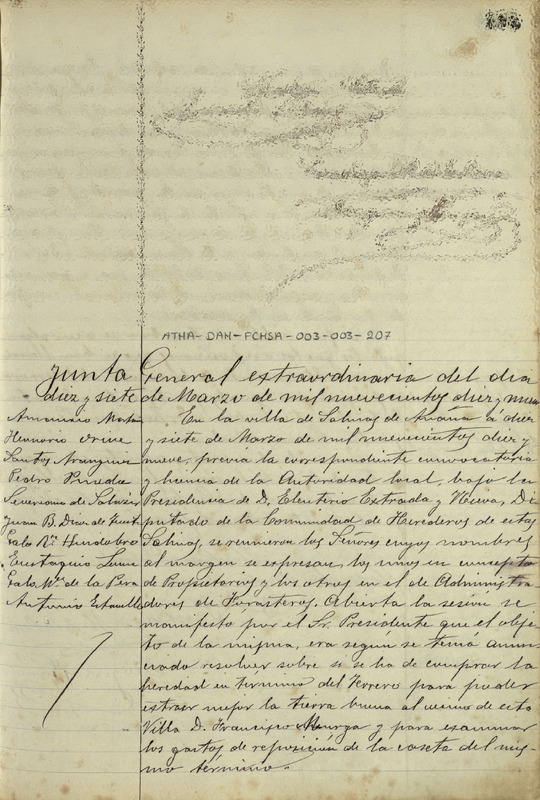 ATHA-DAH-FCHSA-003-003-207
Junta General extraordinaria del dia
diez y siete de Marzo de mil nuevecientos diez y nueve
En la villa de Salinas de Añana á diez
y siete de Marzo de mil nuevecientos diez y
nueve, previa la correspondiente convocatoria
y licencia de la Autoridad local, bajo la
Presidencia de D. Eleuterio Extrada y Nieva, Di
putado de la Comunidad de Herederos de estas
Salinas, se reunieron los Señores cuyos nombres
al margen se expresan, los unos en concepto
de Propietarios y los otros en el de Administra
dores de Forasteros. Abierta la sesión se
manifesto por el Sr. Presidente que el obje
to de la misma, era según se tenia anun
ciado resolver sobre si se ha de comprar la
heredad en término del Terrero para poder
extraer mejor la tierra buena al vecino de esta
Villa D. Francisco Murga y para examinar
los gastos de reposición de la caseta del mis
mo término.
Honorio Orive
Santos Aranguiz
Pedro Pinedo
Severiano de Salazar
Juan B. Diaz de
Galo Mª Hurdobro
Eustaquio
Galo Mª. de la Pera
Antonio